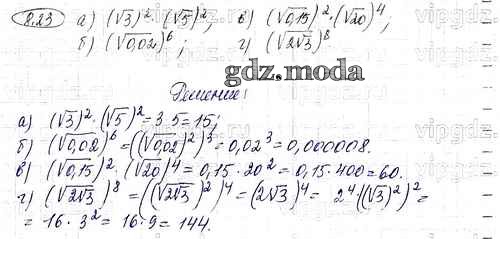 8.23 а) (√3)²·(√5)²; в) (√0,15)²·(√20)⁴;
б) (√0,02)⁶; г) (√2√3)⁸
gdz.moda
Решение:
а) (√3)²·(√5)² = 3·5 = 15;
б) (√0,02)⁶ = ((√0,02)²)³ = 0,02³ = 0,000008.
в) (√0,15)²·(√20)⁴ = 0,15·20² = 0,15·400 = 60.
г) (√2√3)⁸ = ((√2√3)²)⁴ = (2√3)⁴ = 2⁴·((√3)²)² =
= 16·3² = 16·9 = 144.
vipgdz